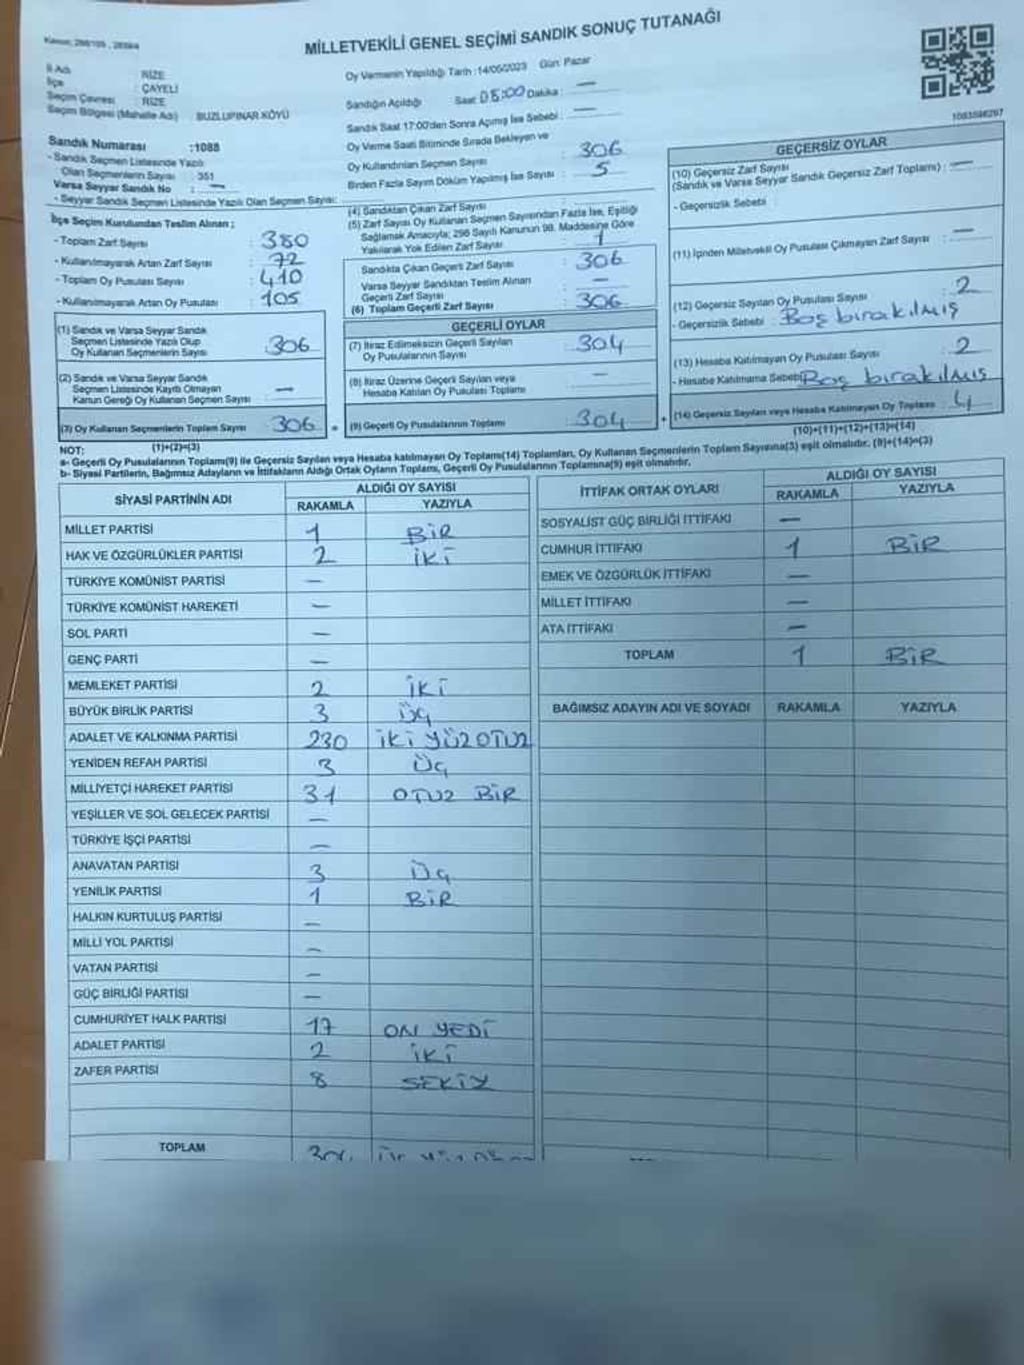 MİLLETVEKİLİ GENEL SEÇİMİ SANDIK SONUÇ TUTANAĞI
İl Adı : RİZE
İlçe : ÇAYELİ
Seçim Çevresi : RİZE
Seçim Bölgesi (Mahalle Adı) : BUZLUPINAR KÖYÜ
Oy Vermenin Yapıldığı Tarih :14/05/2023 Gün: Pazar
Sandığın Açıldığı Saat: 08:00 Dakika : —
Sandık Saat 17:00'den Sonra Açılmış İse Sebebi : —
Oy Verme Saati Bitiminde Sırada Bekleyen ve
Oy Kullandırılan Seçmen Sayısı : 306
Birden Fazla Sayım Döküm Yapılmış İse Sayısı : 5
Sandık Numarası :1088
- Sandık Seçmen Listesinde Yazılı
Olan Seçmenlerin Sayısı : 351
Varsa Seyyar Sandık No : —
- Seyyar Sandık Seçmen Listesinde Yazılı Olan Seçmen Sayısı:
İlçe Seçim Kurulundan Teslim Alınan ;
- Toplam Zarf Sayısı : 380
- Kullanılmayarak Artan Zarf Sayısı : 72
- Toplam Oy Pusulası Sayısı : 410
- Kullanılmayarak Artan Oy Pusulası : 105
(1) Sandık ve Varsa Seyyar Sandık
Seçmen Listesinde Yazılı Olup
Oy Kullanan Seçmenlerin Sayısı : 306
(2) Sandık ve Varsa Seyyar Sandık
Seçmen Listesinde Kayıtlı Olmayan
Kanun Gereği Oy Kullanan Seçmen Sayısı : —
(3) Oy Kullanan Seçmenlerin Toplam Sayısı : 306
(4) Sandıktan Çıkan Zarf Sayısı :
(5) Zarf Sayısı Oy Kullanan Seçmen Sayısından Fazla İse, Eşitliği
Sağlamak Amacıyla; 298 Sayılı Kanunun 98. Maddesine Göre
Yakılarak Yok Edilen Zarf Sayısı : 1
Sandıkta Çıkan Geçerli Zarf Sayısı : 306
Varsa Seyyar Sandıktan Teslim Alınan
Geçerli Zarf Sayısı : —
(6) Toplam Geçerli Zarf Sayısı : 306
GEÇERLİ OYLAR
(7) İtiraz Edilmeksizin Geçerli Sayılan
Oy Pusulalarının Sayısı : 304
(8) İtiraz Üzerine Geçerli Sayılan veya
Hesaba Katılan Oy Pusulası Toplamı : —
= (9) Geçerli Oy Pusulalarının Toplamı : 304
GEÇERSİZ OYLAR
(10) Geçersiz Zarf Sayısı
(Sandık ve Varsa Seyyar Sandık Geçersiz Zarf Toplamı) : —
- Geçersizlik Sebebi :
(11) İçinden Milletvekili Oy Pusulası Çıkmayan Zarf Sayısı : —
(12) Geçersiz Sayılan Oy Pusulası Sayısı : 2
- Geçersizlik Sebebi : Boş bırakılmış
(13) Hesaba Katılmayan Oy Pusulası Sayısı : 2
- Hesaba Katılmama Sebebi: Boş bırakılmış
+ (14) Geçersiz Sayılan veya Hesaba Katılmayan Oy Toplamı : 4
(10)+(11)+(12)+(13)=(14)
NOT: (1)+(2)=(3)
a- Geçerli Oy Pusulalarının Toplamı(9) ile Geçersiz Sayılan veya Hesaba katılmayan Oy Toplamı(14) Toplamları, Oy Kullanan Seçmenlerin Toplam Sayısına(3) eşit olmalıdır. (9)+(14)=(3)
b- Siyasi Partilerin, Bağımsız Adayların ve İttifakların Aldığı Ortak Oyların Toplamı, Geçerli Oy Pusulalarının Toplamına(9) eşit olmalıdır.
SİYASİ PARTİNİN ADI ALDIĞI OY SAYISI
RAKAMLA YAZIYLA
MİLLET PARTİSİ 1 BİR
HAK VE ÖZGÜRLÜKLER PARTİSİ 2 İKİ
TÜRKİYE KOMÜNİST PARTİSİ —
TÜRKİYE KOMÜNİST HAREKETİ —
SOL PARTİ —
GENÇ PARTİ —
MEMLEKET PARTİSİ 2 İKİ
BÜYÜK BİRLİK PARTİSİ 3 ÜÇ
ADALET VE KALKINMA PARTİSİ 230 İKİ YÜZ OTUZ
YENİDEN REFAH PARTİSİ 3 ÜÇ
MİLLİYETÇİ HAREKET PARTİSİ 31 OTUZ BİR
YEŞİLLER VE SOL GELECEK PARTİSİ —
TÜRKİYE İŞÇİ PARTİSİ —
ANAVATAN PARTİSİ 3 ÜÇ
YENİLİK PARTİSİ 1 BİR
HALKIN KURTULUŞ PARTİSİ —
MİLLİ YOL PARTİSİ —
VATAN PARTİSİ —
GÜÇ BİRLİĞİ PARTİSİ —
CUMHURİYET HALK PARTİSİ 17 ON YEDİ
ADALET PARTİSİ 2 İKİ
ZAFER PARTİSİ 8 SEKİZ
TOPLAM
İTTİFAK ORTAK OYLARI ALDIĞI OY SAYISI
RAKAMLA YAZIYLA
SOSYALİST GÜÇ BİRLİĞİ İTTİFAKI —
CUMHUR İTTİFAKI 1 BİR
EMEK VE ÖZGÜRLÜK İTTİFAKI —
MİLLET İTTİFAKI —
ATA İTTİFAKI —
TOPLAM 1 BİR
BAĞIMSIZ ADAYIN ADI VE SOYADI RAKAMLA YAZIYLA